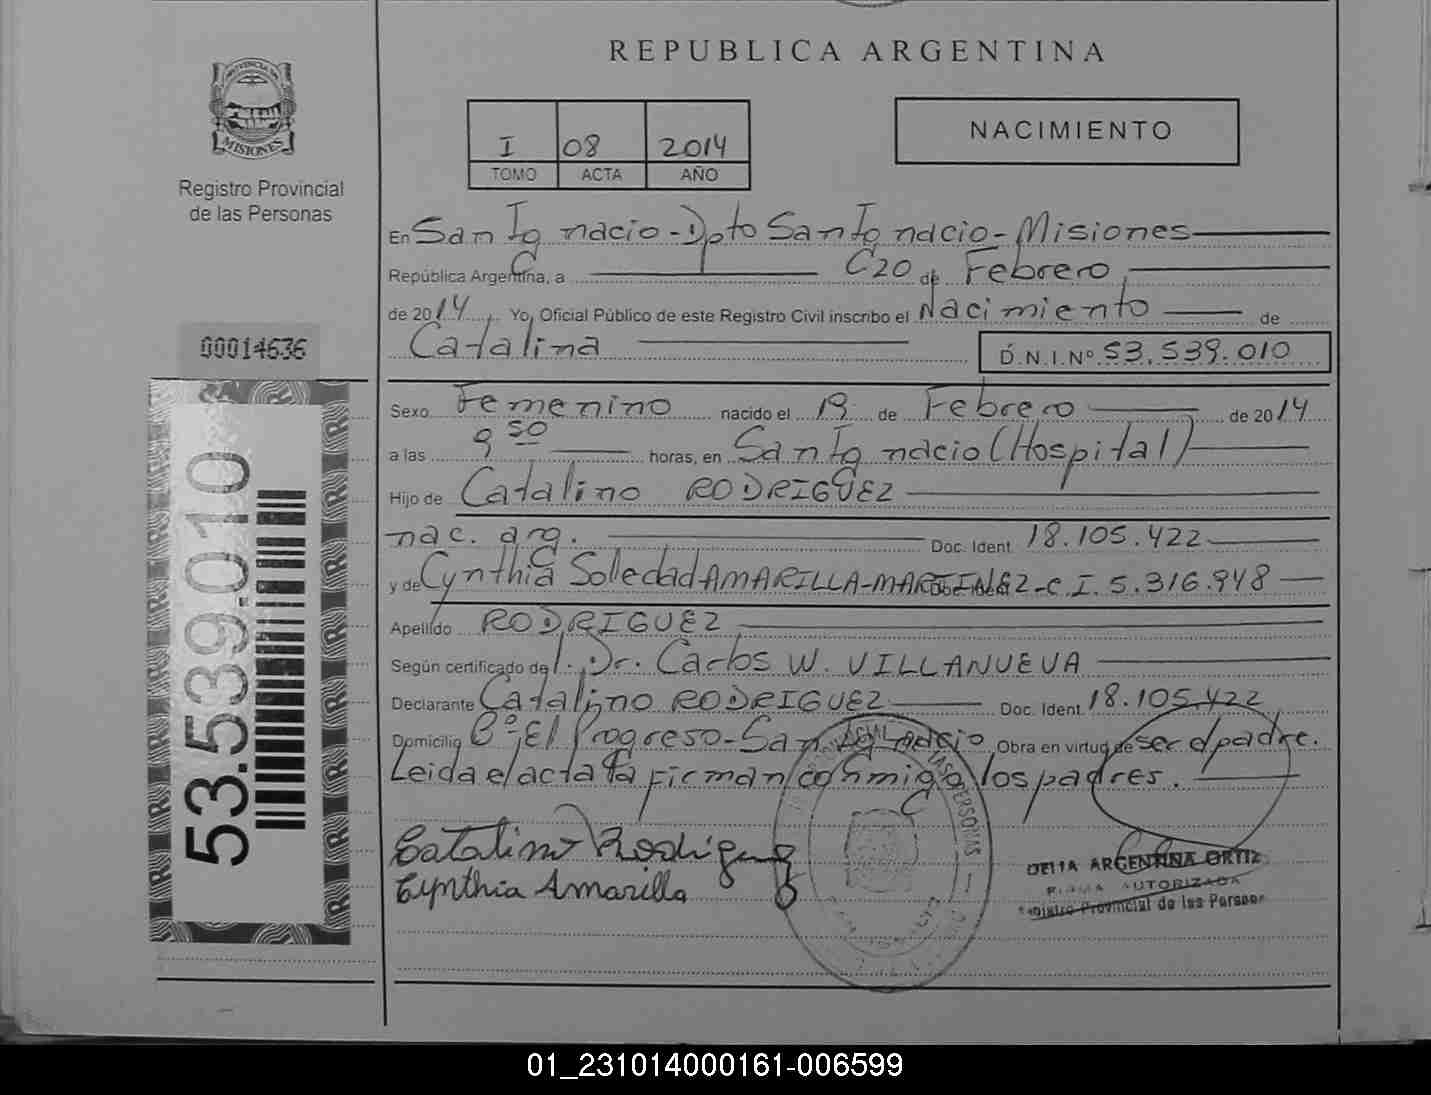 PROVINCIA DE
MISIONES
Registro Provincial
de las Personas
00014636
53.539.010
REPUBLICA ARGENTINA
I 08 2014
TOMO ACTA AÑO
NACIMIENTO
En San Ignacio - Dpto San Ignacio - Misiones
República Argentina, a 20 de Febrero
de 2014, Yo, Oficial Público de este Registro Civil inscribo el Nacimiento de
Catalina D.N.I.Nº 53.539.010
Sexo Femenino nacido el 19 de Febrero de 2014
a las 9 50 horas, en San Ignacio (Hospital)
Hijo de Catalino RODRIGUEZ
nac. arg. Doc. Ident. 18.105.422
y de Cynthia Soledad AMARILLA-MARTINEZ - C.I. 5.316.948
Apellido RODRIGUEZ
Según certificado de l. Dr. Carlos W. VILLANUEVA
Declarante Catalino RODRIGUEZ Doc. Ident. 18.105.422
Domicilio Bº El Progreso - San Ignacio Obra en virtud de ser el padre.
Leida el acta la firman conmigo los padres.
Catalino Rodriguez
Cynthia Amarilla
LAS PERSONAS
DELIA ARGENTINA ORTIZ
FIRMA AUTORIZADA
Registro Provincial de las Personas
01_231014000161-006599